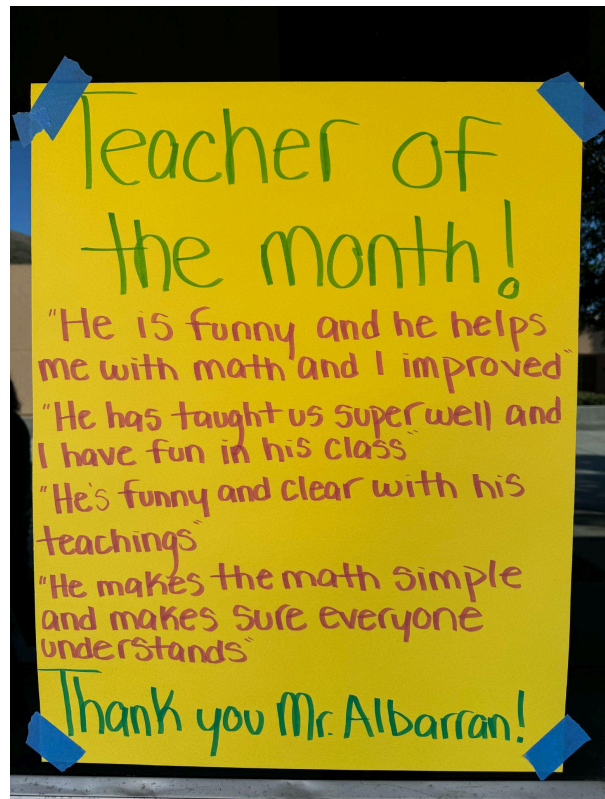 Teacher of
the month!
"He is funny and he helps
me with math and I improved"
"He has taught us super well and
I have fun in his class"
"He's funny and clear with his
teachings"
"He makes the math simple
and makes sure everyone
understands"
Thank you Mr. Albarran!